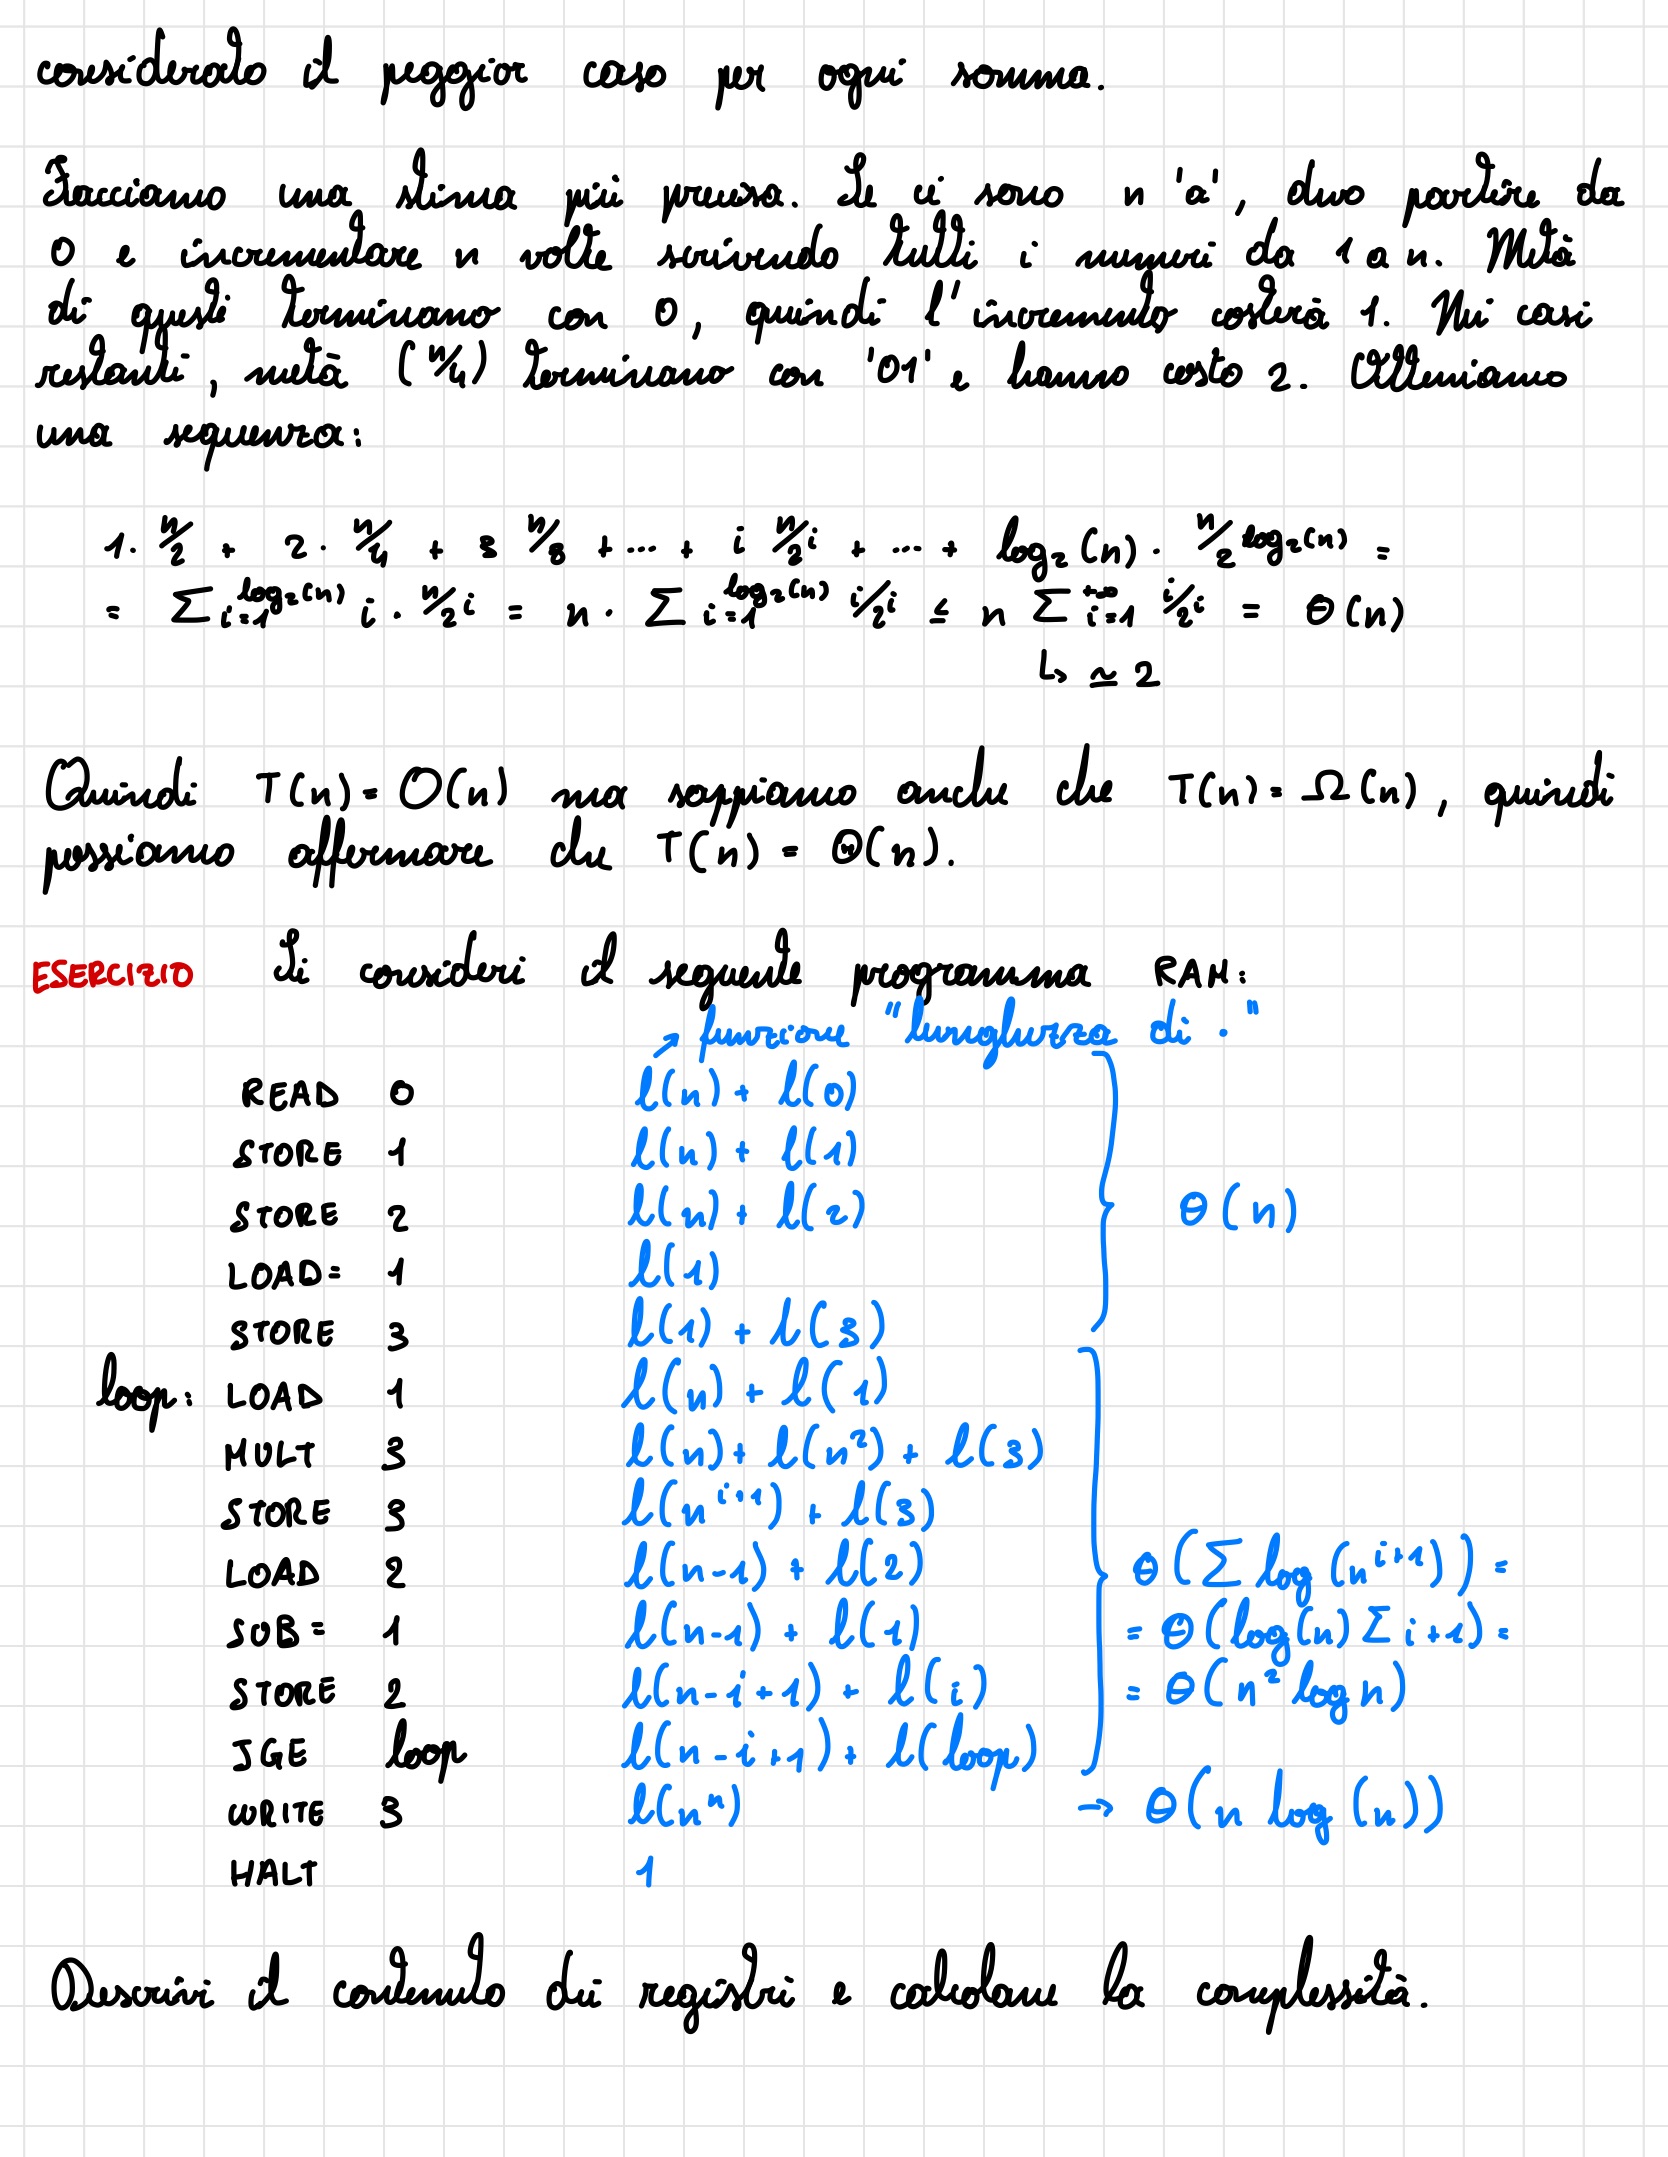 considerato il peggior caso per ogni somma.
Facciamo una stima più precisa. Se ci sono n 'a', devo partire da
0 e incrementare n volte scrivendo tutti i numeri da 1 a n. Metà
di questi terminano con 0, quindi l'incremento costerà 1. Nei casi
restanti, metà (n/4) terminano con '01' e hanno costo 2. Otteniamo
una sequenza:
1 · n/2 + 2 · n/4 + 3 n/8 + ... + i n/2^i + ... + log₂(n) · n/2^log₂(n) =
= Σ_{i=1}^{log₂(n)} i · n/2^i = n · Σ_{i=1}^{log₂(n)} i/2^i ≤ n Σ_{i=1}^{+∞} i/2^i = Θ(n)
↳ ≃ 2
Quindi T(n) = O(n) ma sappiamo anche che T(n) = Ω(n), quindi
possiamo affermare che T(n) = Θ(n).
ESERCIZIO Si consideri il seguente programma RAM:
↗ funzione "lunghezza di ·"
READ 0 l(n) + l(0)
STORE 1 l(n) + l(1)
STORE 2 l(n) + l(2) Θ(n)
LOAD= 1 l(1)
STORE 3 l(1) + l(3)
loop: LOAD 1 l(n) + l(1)
MULT 3 l(n) + l(n²) + l(3)
STORE 3 l(n^{i+1}) + l(3)
LOAD 2 l(n-1) + l(2) Θ(Σ log(n^{i+1})) =
SUB= 1 l(n-1) + l(1) = Θ(log(n) Σ i+1) =
STORE 2 l(n-i+1) + l(i) = Θ(n² log n)
JGE loop l(n-i+1) + l(loop)
WRITE 3 l(nⁿ) → Θ(n log(n))
HALT 1
Descrivi il contenuto dei registri e calcolane la complessità.